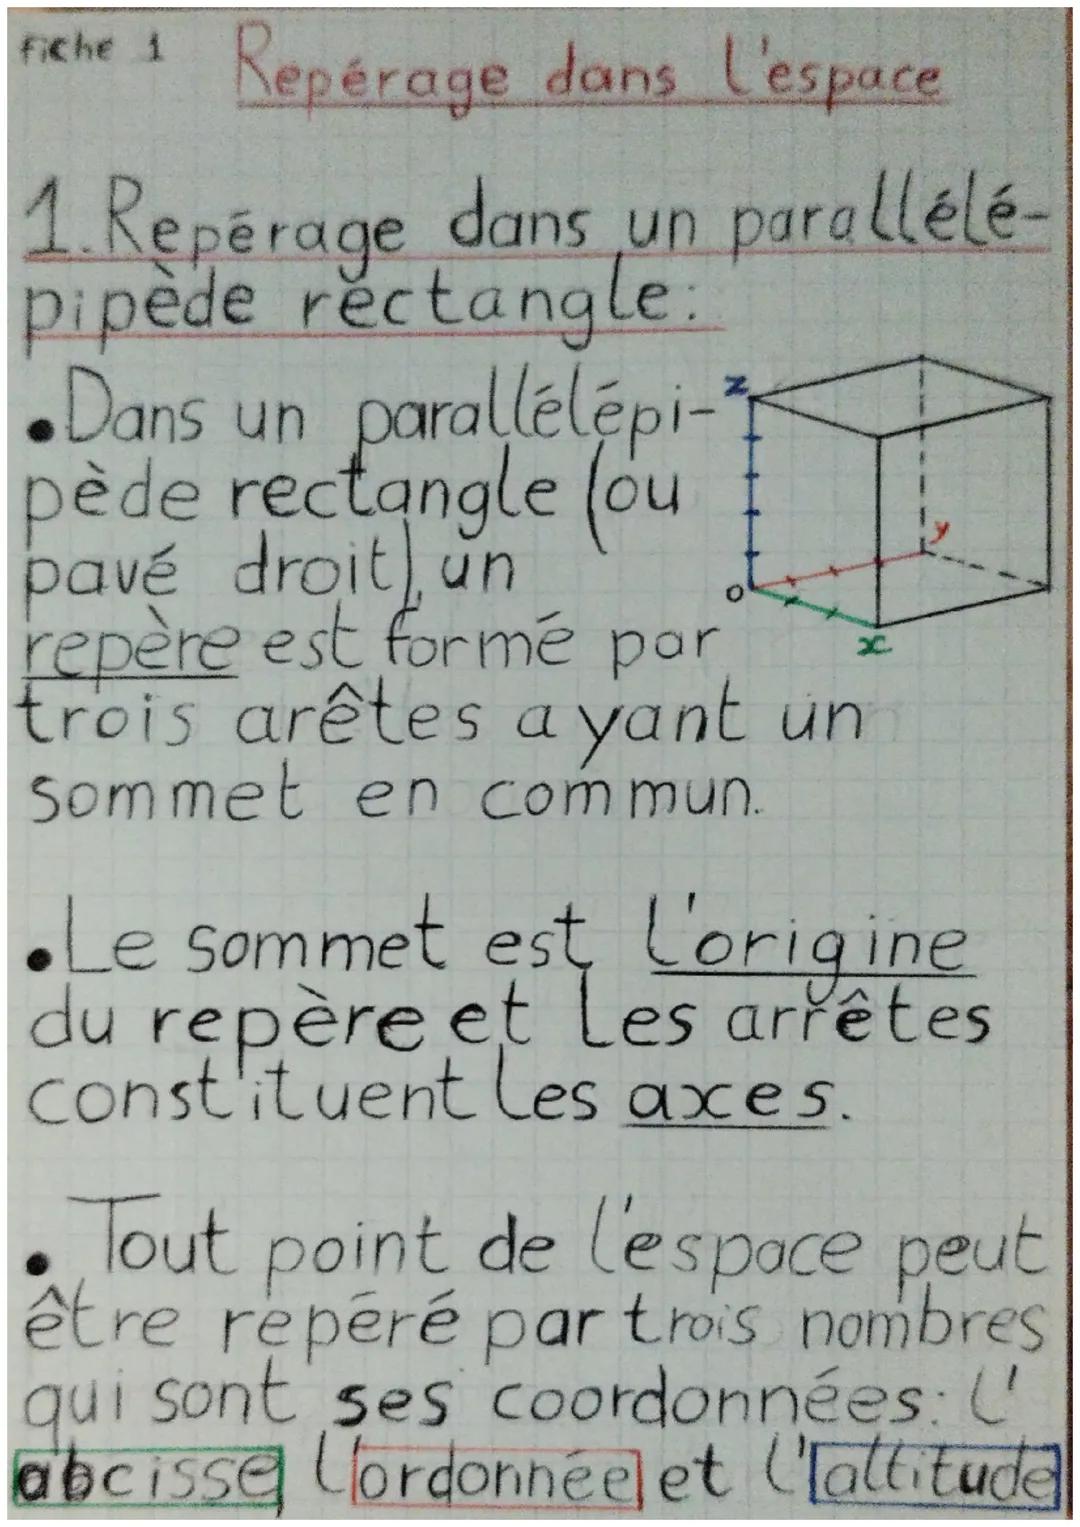 Fiche 1
Repérage dans l'espace
1. Repérage dans un parallélé-
pipède rectangle:
•Dans un parallélépi-
pède rectangle (ou
pavé droit), un
repère est formé par
trois arêtes ayant un
sommet en commun.
z
y
o
x
•Le sommet est l'origine
du repère et les arrêtes
constituent les axes.
• Tout point de l'espace peut
être repéré par trois nombres
qui sont ses coordonnées: l'
abcisse, l'ordonnée et l'altitude